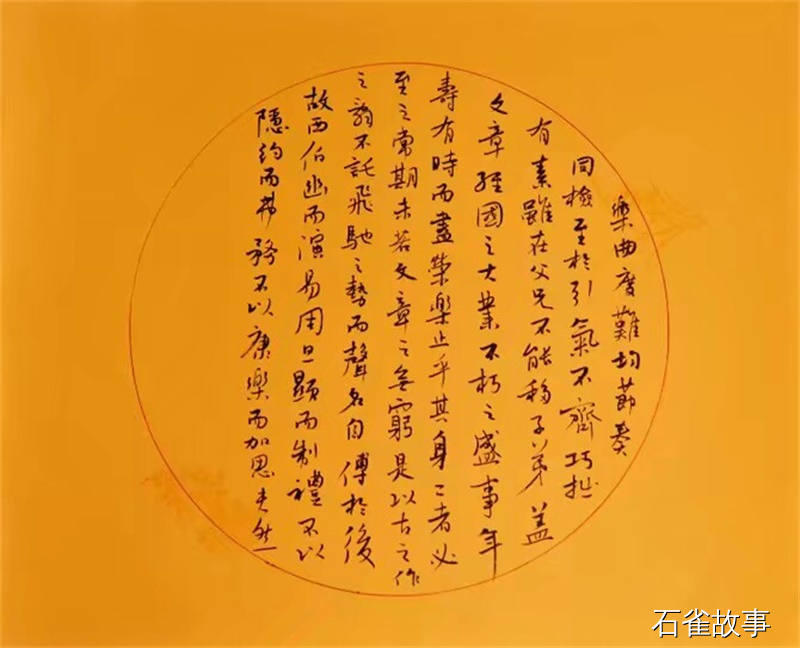 樂曲度難均節奏
同檢至於引氣不齊巧拙
有素雖在父兄不能移子弟蓋
文章經國之大業不朽之盛事年
壽有時而盡榮樂止乎其身二者必
至之常期未若文章之無窮是以古之作
之辭不託飛馳之勢而聲名自傳於後
故西伯幽而演易周旦顯而制禮不以
隱約而弗務不以康樂而加思夫然
石雀故事